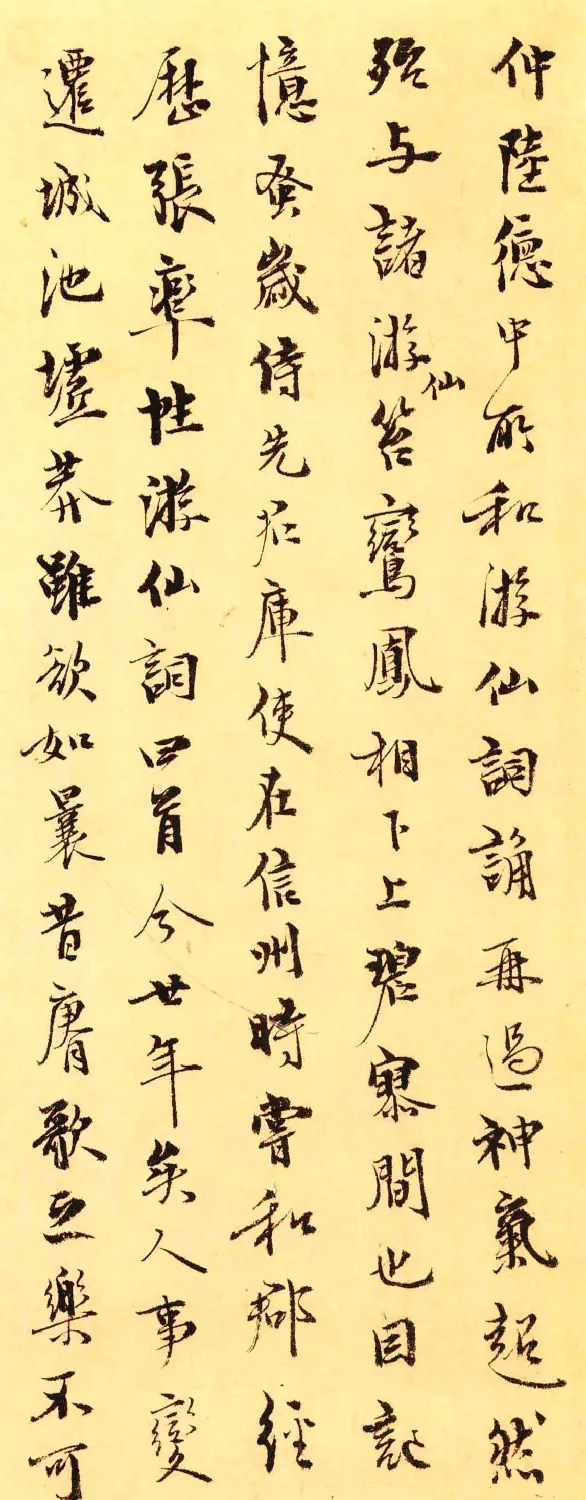 仲陸德中所和游仙詞誦再過神氣超然
殆与諸游仙笞鸞鳳相下上碧寥間也因記
憶蚤歲侍先君庫使在信州時嘗和郡經
歷張率性游仙詞四首今廿年矣人事變
遷城池墟莽雖欲如曩昔賡歌之樂不可